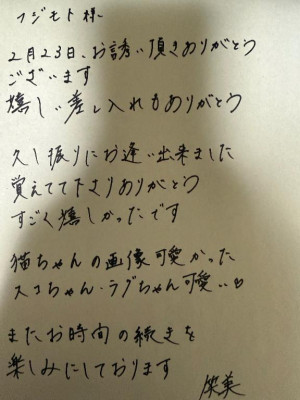 フジモト様
2月23日、お誘い頂きありがとう
ございます
嬉しい差し入れもありがとう
久し振りにお逢い出来ました
覚えてて下さりありがとう
すごく嬉しかったです
猫ちゃんの画像可愛かった
スコちゃん・ラグちゃん可愛い♡
またお時間の続きを
楽しみにしております